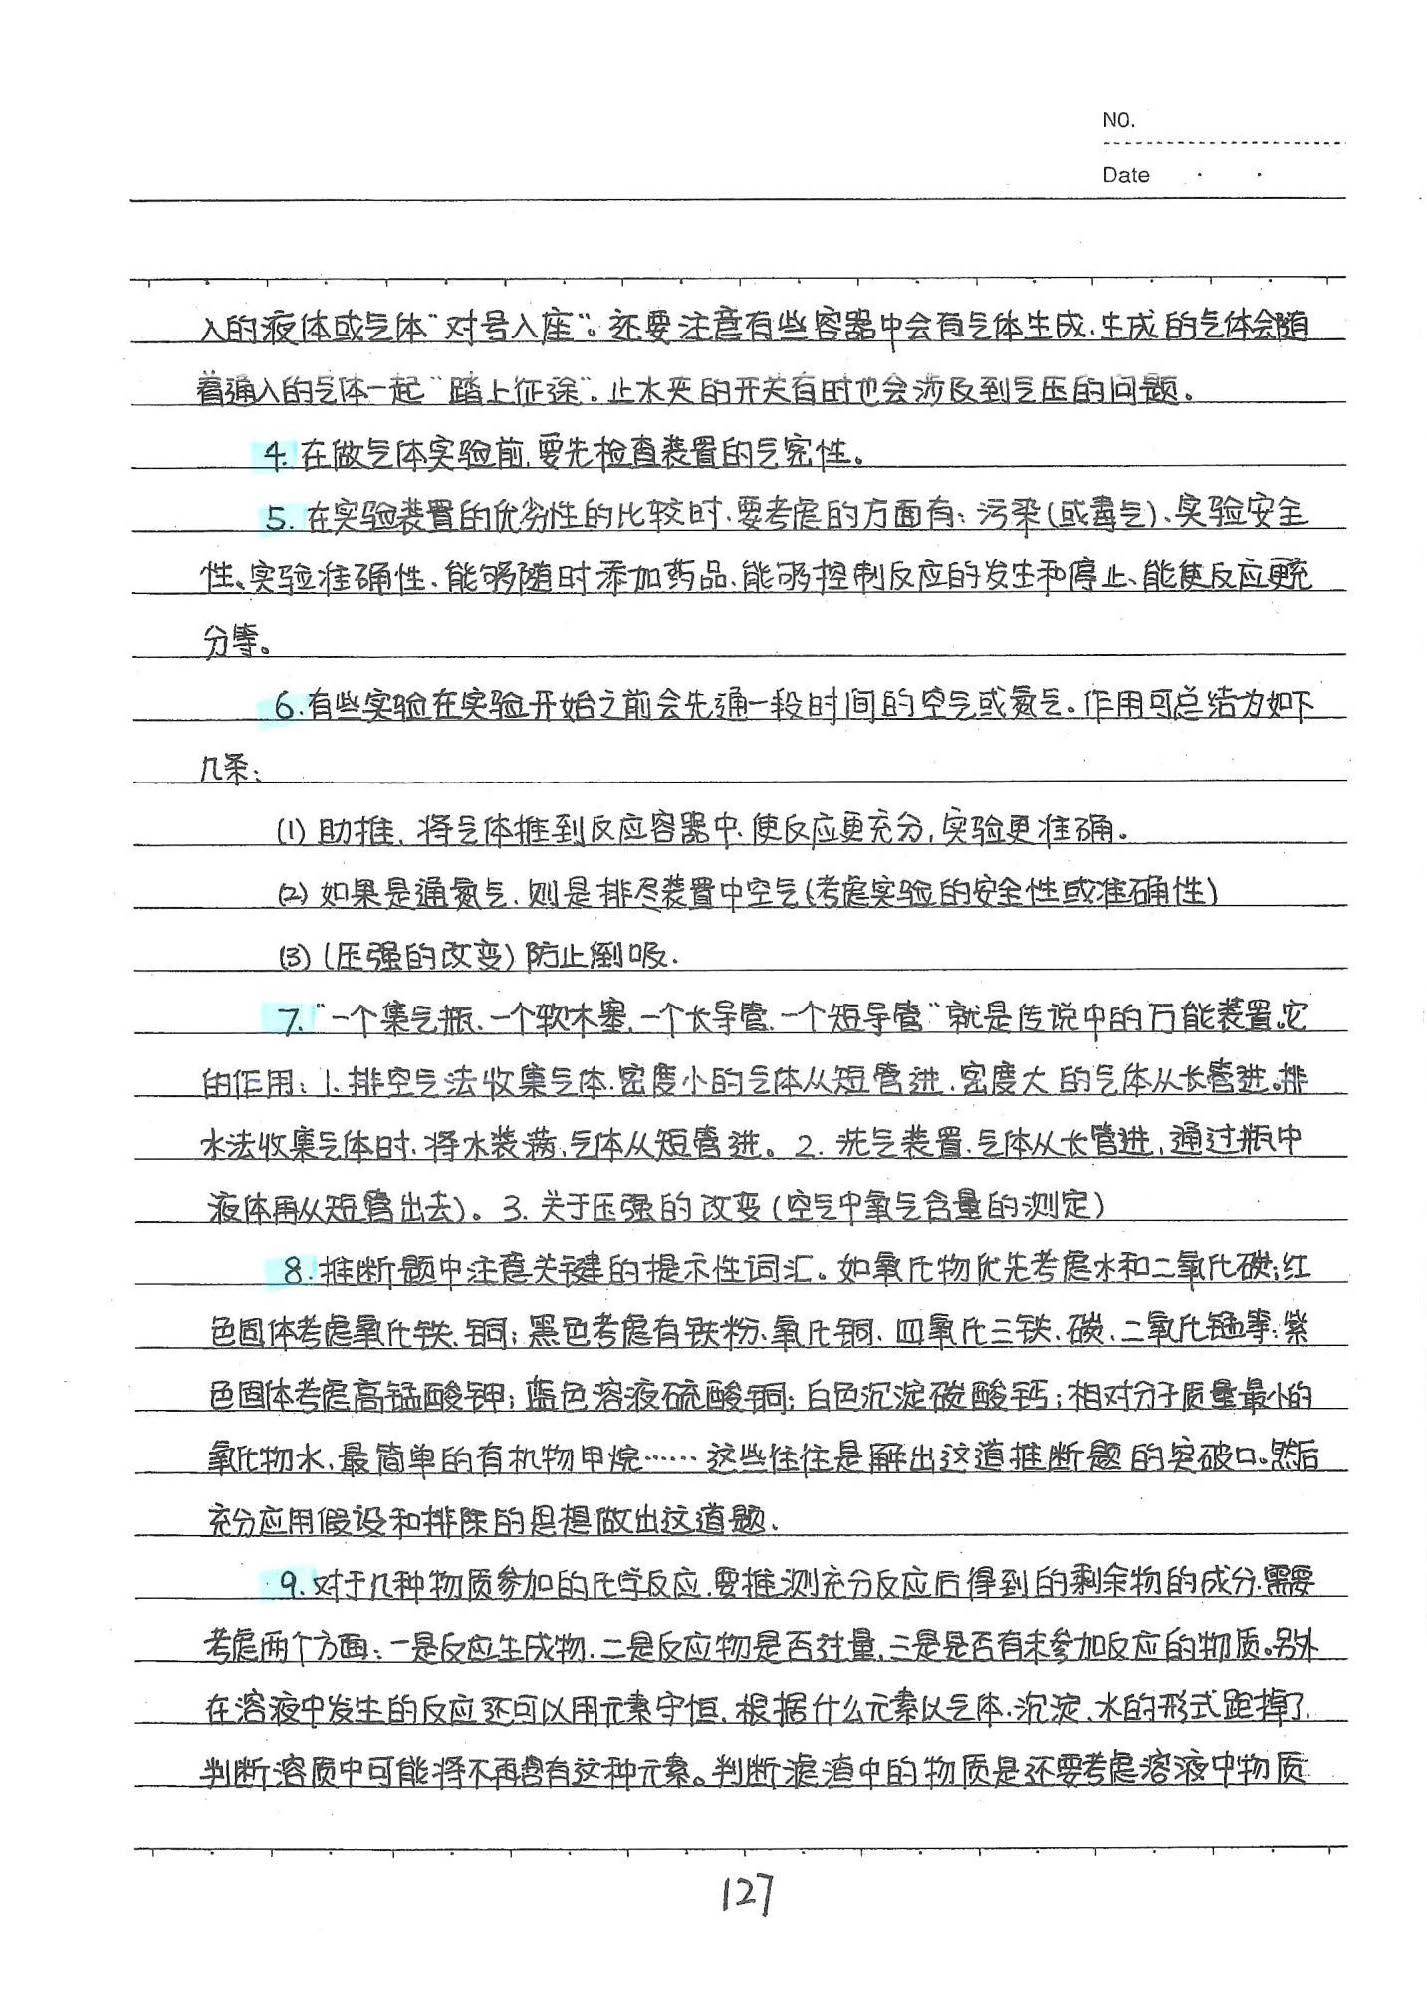 NO.
Date
入的液体或气体"对号入座"。还要注意有些容器中会有气体生成.生成的气体会随
着通入的气体一起"踏上征途"。止水夹的开关有时也会涉及到气压的问题。
4.在做气体实验前,要先检查装置的气密性。
5.在实验装置的优劣性的比较时,要考虑的方面有:污染(或毒气)、实验安全
性、实验准确性、能够随时添加药品、能够控制反应的发生和停止、能使反应更充
分等。
6.有些实验在实验开始之前会先通一段时间的空气或氮气。作用可总结为如下
几条:
(1)助推.将气体推到反应容器中.使反应更充分,实验更准确。
(2)如果是通氮气.则是排尽装置中空气(考虑实验的安全性或准确性)
(3)(压强的改变)防止倒吸.
7."一个集气瓶、一个软木塞,一个长导管、一个短导管"就是传说中的万能装置。它
的作用:1.排空气法收集气体.密度小的气体从短管进.密度大的气体从长管进。排
水法收集气体时,将水装满,气体从短管进。2.洗气装置.气体从长管进,通过瓶中
液体再从短管出去)。3.关于压强的改变(空气中氧气含量的测定)
8.推断题中注意关键的提示性词汇。如氧化物优先考虑水和二氧化碳;红
色固体考虑氧化铁、铜;黑色考虑有铁粉、氧化铜、四氧化三铁、碳、二氧化锰等;紫
色固体考虑高锰酸钾;蓝色溶液硫酸铜;白色沉淀碳酸钙;相对分子质量最小的
氧化物水,最简单的有机物甲烷……这些往往是解出这道推断题的突破口。然后
充分应用假设和排除的思想做出这道题.
9.对于几种物质参加的化学反应.要推测充分反应后得到的剩余物的成分.需要
考虑两个方面:一是反应生成物.二是反应物是否过量,三是是否有未参加反应的物质。另外
在溶液中发生的反应还可以用元素守恒.根据什么元素以气体.沉淀、水的形式跑掉了
判断溶质中可能将不再含有这种元素。判断滤渣中的物质是还要考虑溶液中物质
127